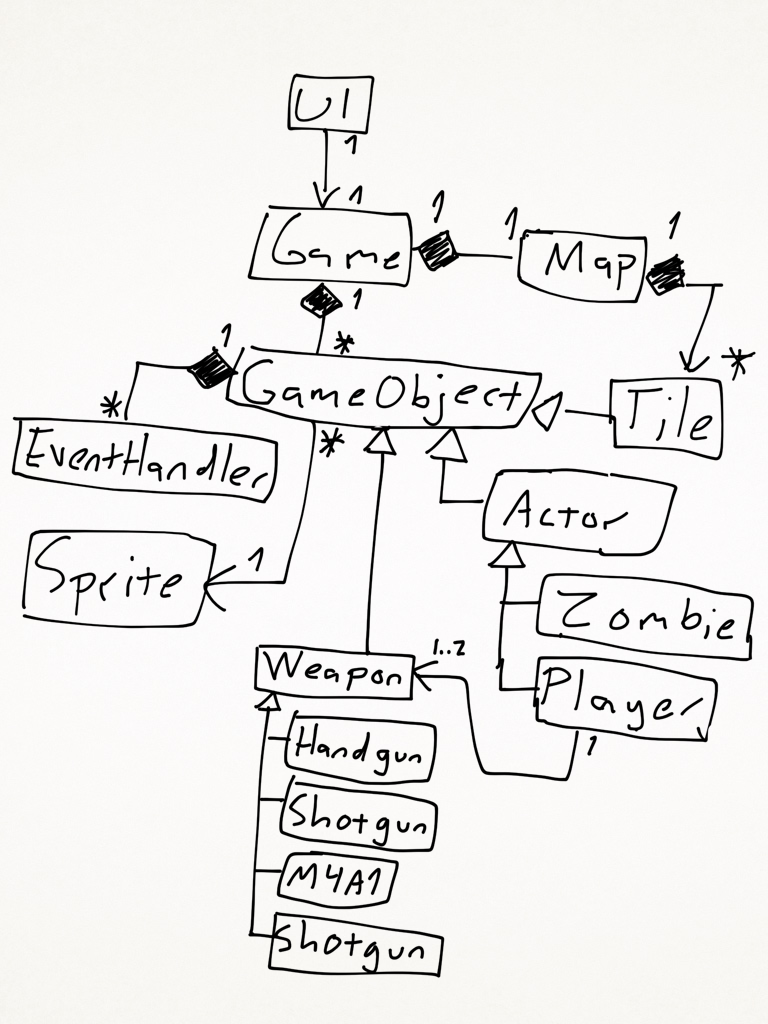 UI
1
1
Game
1
1
Map
1
1
*
*
1
GameObject
Tile
*
EventHandler
*
Actor
Sprite
1
Zombie
1..2
Weapon
Player
1
Handgun
Shotgun
M4A1
Shotgun